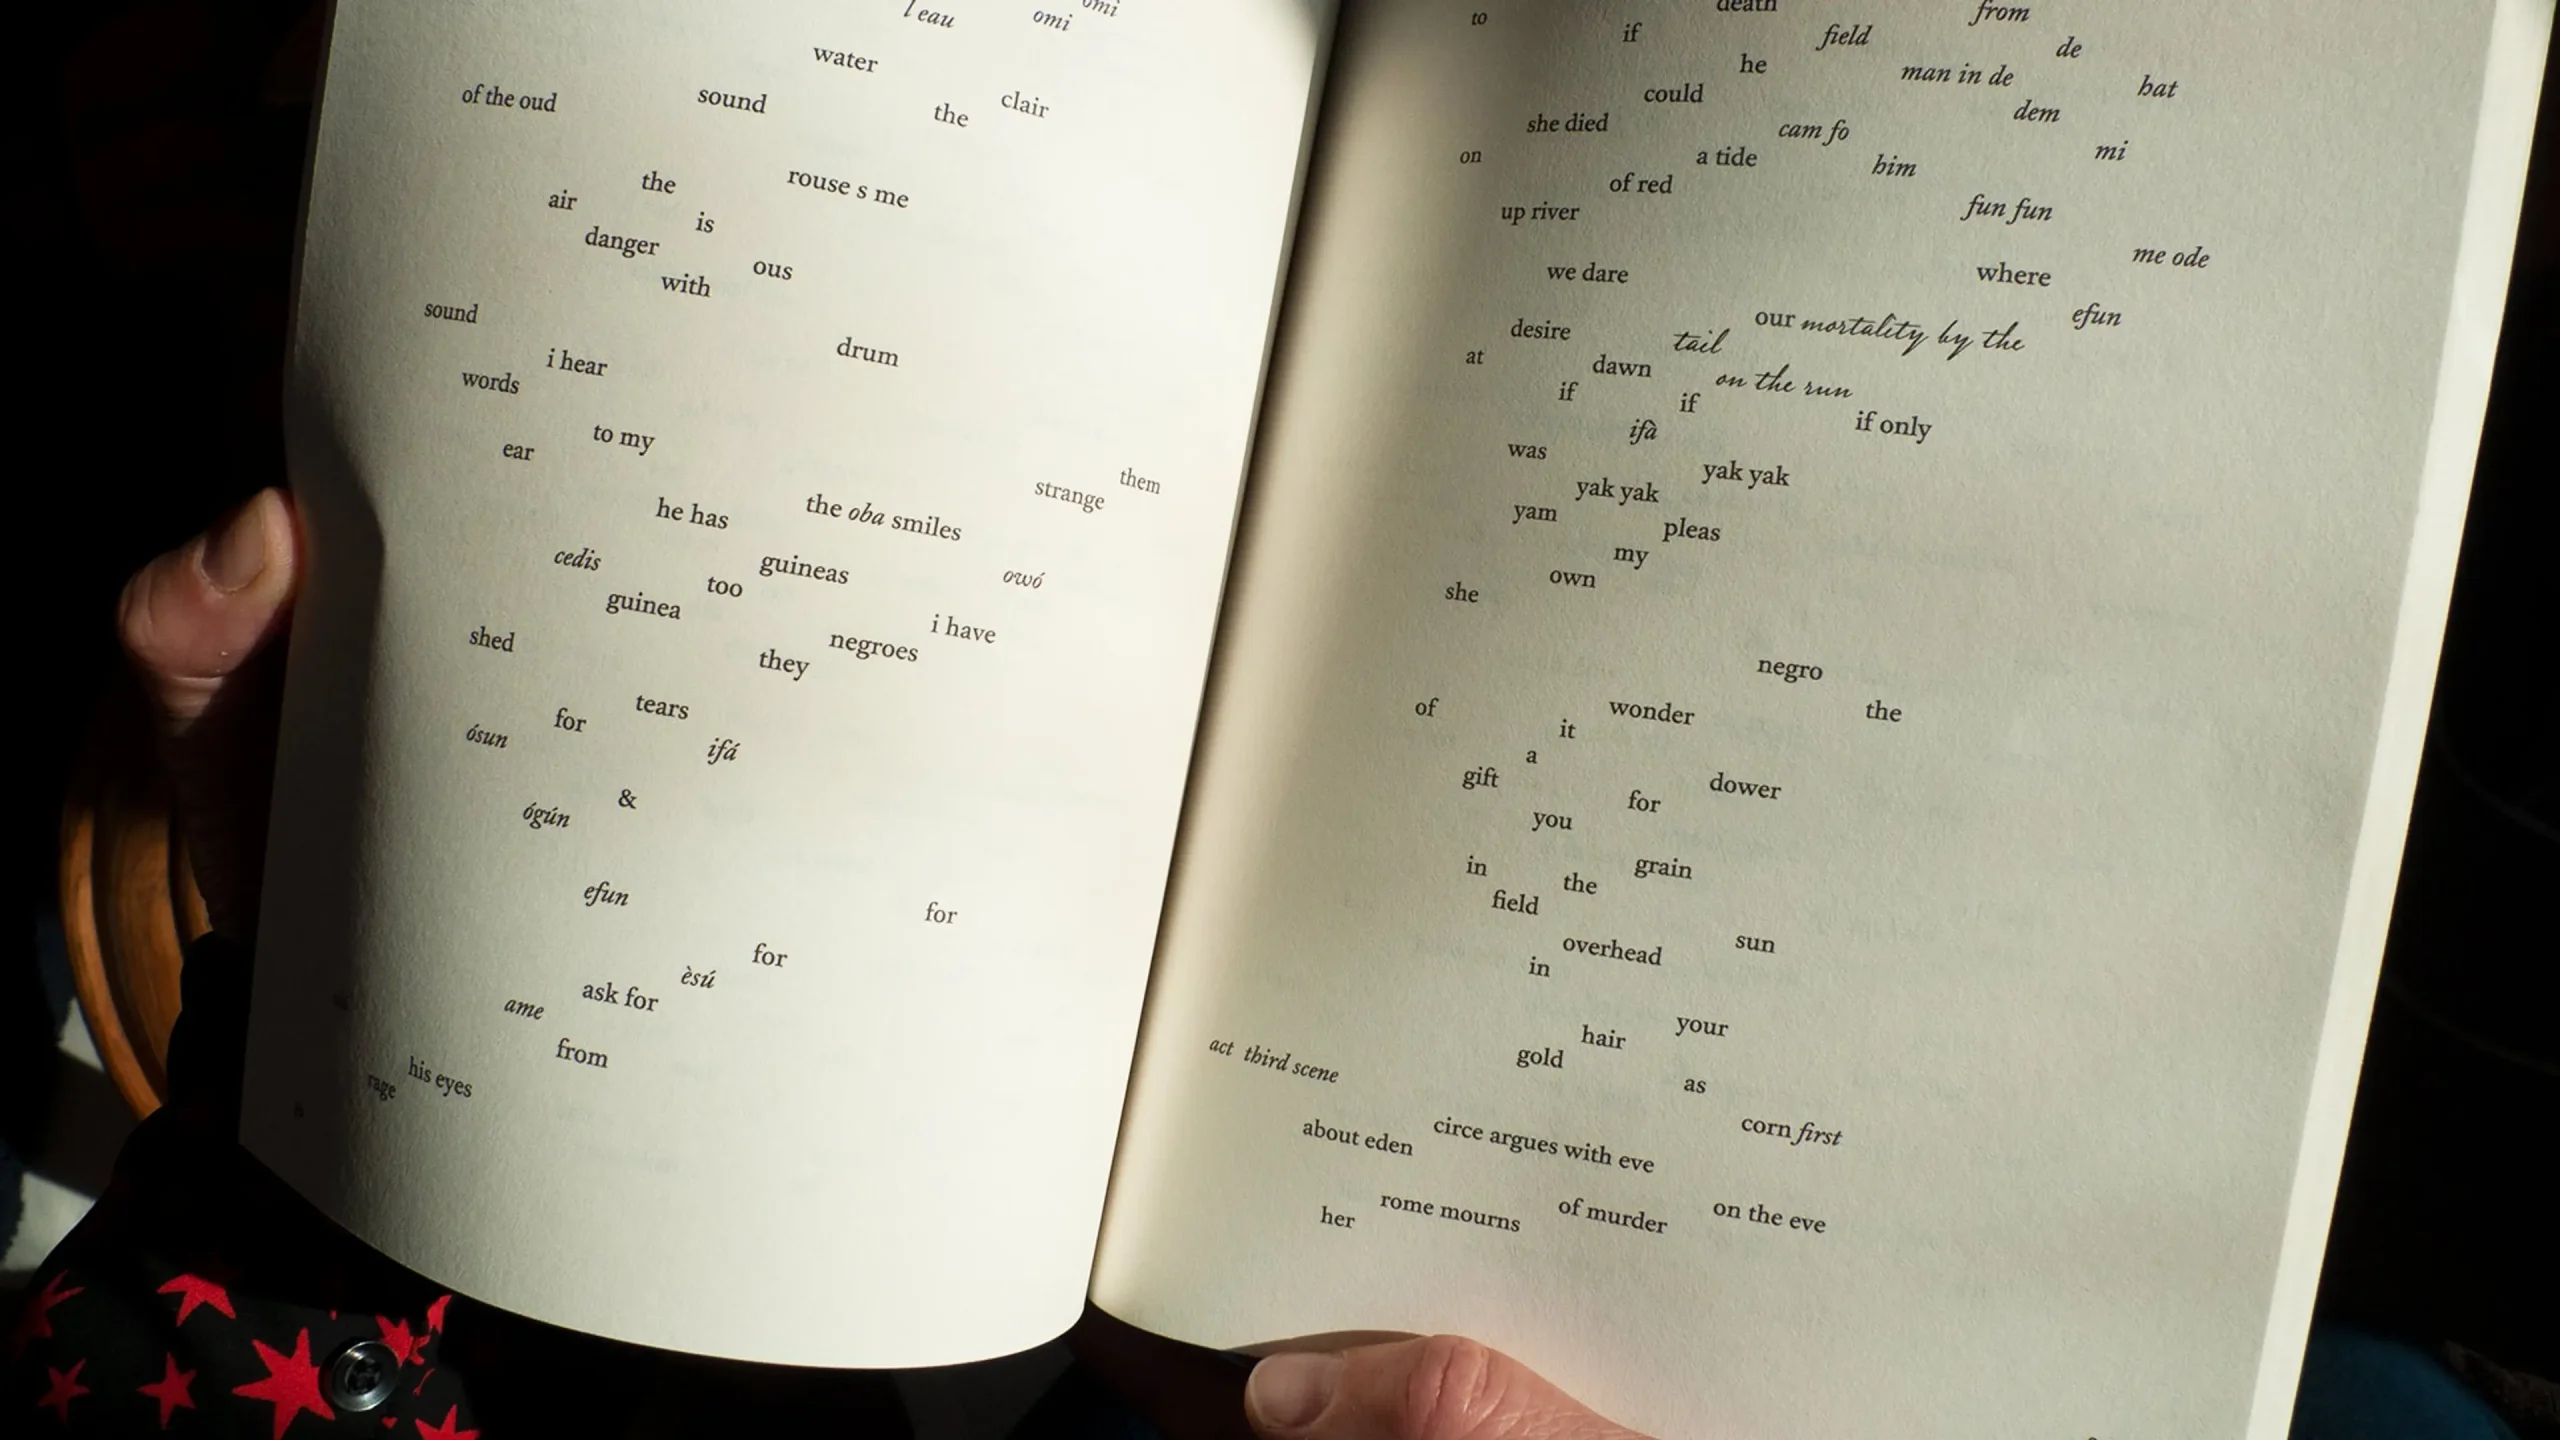 omi
l eau omi
water
clair
the
sound
of the oud
rouse s me
the
air is
danger ous
with
drum
sound
i hear them
words strange
to my
ear
the oba smiles
he has owó
guineas
cedis too i have
guinea negroes
they
shed
tears
for ifá
ósun
&
ógún
for
efun
for
èsú
ask for
ame
from
his eyes
rage
from
death de
to if field hat
he man in de
could dem
she died cam fo mi
on a tide him
of red fun fun
up river me ode
where
we dare efun
our mortality by the
desire tail
at dawn on the run
if if if only
ifà
was yak yak
yak yak
yam pleas
my
own
she
negro
the
wonder
of it
a dower
gift for
you
grain
in the
field sun
overhead
in
your
hair
gold as
corn first
act third scene
circe argues with eve
about eden
on the eve
of murder
rome mourns
her